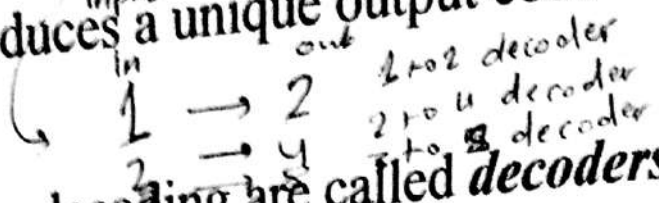 duces a unique output
in out
1 → 2 1 to 2 decoder
2 → 4 2 to 4 decoder
to 8 decoder
are called decoders